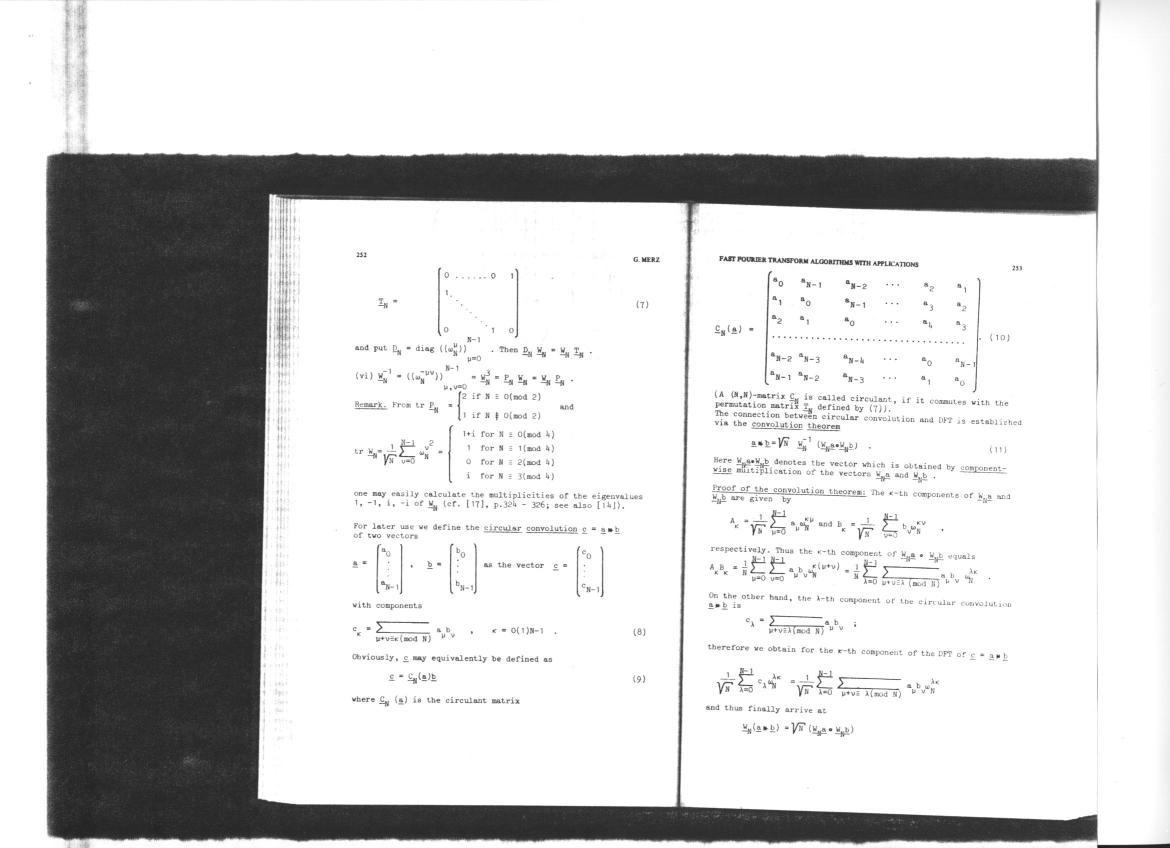 252
G. MERZ
T_N = [ 0 ...... 0 1 ; 1 . . ; 0 1 0 ] (7)
and put D_N = diag ((ω_N^μ))_{μ=0}^{N-1} . Then D_N W_N = W_N T_N .
(vi) W_N^{-1} = ((ω_N^{-μν}))_{μ,ν=0}^{N-1} = W_N^3 = P_N W_N = W_N P_N .
Remark. From tr P_N = { 2 if N ≡ 0(mod 2) and
1 if N ≢ 0(mod 2)
tr W_N = 1/√N Σ_{ν=0}^{N-1} ω_N^{ν^2} = { 1+i for N ≡ 0(mod 4)
1 for N ≡ 1(mod 4)
0 for N ≡ 2(mod 4)
i for N ≡ 3(mod 4)
one may easily calculate the multiplicities of the eigenvalues
1, -1, i, -i of W_N (cf. [17], p.324 - 326; see also [14]).
For later use we define the circular convolution c = a * b
of two vectors
a = [ a_0 . . . a_{N-1} ] , b = [ b_0 . . . b_{N-1} ] as the vector c = [ c_0 . . . c_{N-1} ]
with components
c_κ = Σ_{μ+ν≡κ(mod N)} a_μ b_ν , κ = 0(1)N-1 . (8)
Obviously, c may equivalently be defined as
c = C_N(a)b (9)
where C_N (a) is the circulant matrix
FAST FOURIER TRANSFORM ALGORITHMS WITH APPLICATIONS
253
a_0 a_{N-1} a_{N-2} ... a_2 a_1
a_1 a_0 a_{N-1} ... a_3 a_2
a_2 a_1 a_0 ... a_4 a_3
C_N(a) = .............................. . (10)
a_{N-2} a_{N-3} a_{N-4} ... a_0 a_{N-1}
a_{N-1} a_{N-2} a_{N-3} ... a_1 a_0
(A (N,N)-matrix C_N is called circulant, if it commutes with the
permutation matrix T_N defined by (7)).
The connection between circular convolution and DFT is established
via the convolution theorem
a * b = √N W_N^{-1} (W_N a • W_N b) . (11)
Here W_N a • W_N b denotes the vector which is obtained by component-
wise multiplication of the vectors W_N a and W_N b .
Proof of the convolution theorem: The κ-th components of W_N a and
W_N b are given by
A_κ = 1/√N Σ_{μ=0}^{N-1} a_μ ω_N^{κμ} and B_κ = 1/√N Σ_{ν=0}^{N-1} b_ν ω_N^{κν} ,
respectively. Thus the κ-th component of W_N a • W_N b equals
A_κ B_κ = 1/N Σ_{μ=0}^{N-1} Σ_{ν=0}^{N-1} a_μ b_ν ω_N^{κ(μ+ν)} = 1/N Σ_{λ=0}^{N-1} Σ_{μ+ν≡λ (mod N)} a_μ b_ν ω_N^{λκ} .
On the other hand, the λ-th component of the circular convolution
a * b is
c_λ = Σ_{μ+ν≡λ(mod N)} a_μ b_ν ;
therefore we obtain for the κ-th component of the DFT of c = a * b
1/√N Σ_{λ=0}^{N-1} c_λ ω_N^{λκ} = 1/√N Σ_{λ=0}^{N-1} Σ_{μ+ν≡ λ(mod N)} a_μ b_ν ω_N^{λκ}
and thus finally arrive at
W_N(a * b) = √N (W_N a • W_N b)